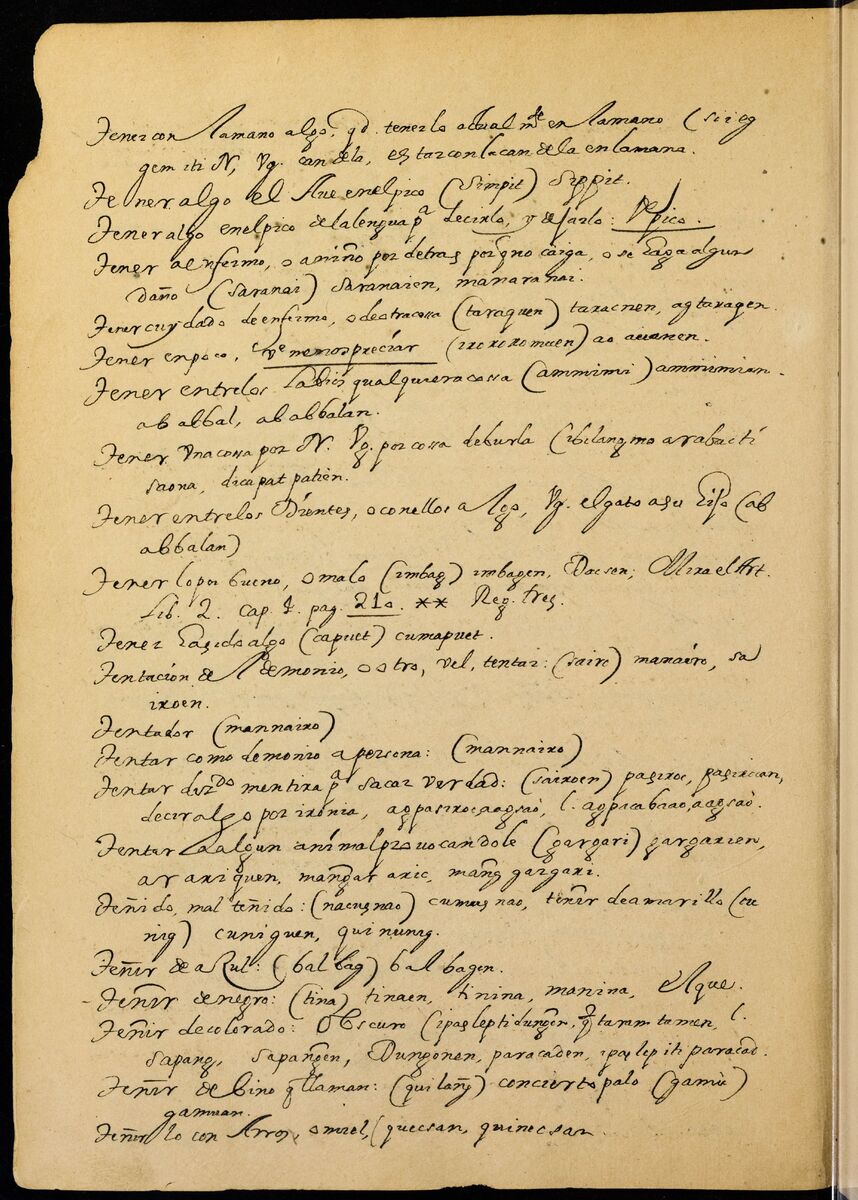 Tener con la mano algo, q.d. tenerlo actual mte en la mano (siieg
gem iti N, Vg. candela, estar con la candela en la mana.
Tener algo el Ave en el pico (simpit) sippit.
Tener algo en el pico de la lengua pa decirlo, y dejarlo: Ve pico.
Tener al enfermo, o a niño por detras porq no caiga, o se haga algun
daño (saranai) saranaien, manaranai.
Tener cuydado de enfermo, o de otra cossa (taraquen) taracnen, agtaragen.
Tener en poco, ve menospreciar
Tener entre los labios qualquiera cossa (ammimi) ammimian.
ab albal, ab abbalan.
Tener Vna cossa por N. Vg. por cossa de burla (ibilang mo arabacti
saona, dicapat patien.
Tener entre los Dientes, o con ellos algo, Vg. el gato a su hijo (ab
abbalan)
Tener lo por bueno, o malo (imbag) imbagen, Docsen; Mira el Art.
Lib. 2. cap. 1. pag. 210. ** Reg. tres.
Tener asido algo (capuet) cumapuet.
Tentacion de Demonio, o otro, vel, tentar: (sairo) manairo, sa
iroen.
Tentador (mannairo)
Tentar como demonio a persona: (mannairo)
Tentar diz.do mentira pa sacar verdad: (sairoen) pasiroc, pasirocan,
decir algo por ironia, agpasiroc aagsao, l. agpicabiao, aagsao.
Tentar a algun animal provocandole (gargari) gargarien,
ar ariquen, mangar aric, mang gargari.
Teñido, mal teñido: (nacusnao) cumusnao, teñir de amarillo (cu
nig) cuniguen, quinunig.
Teñir de azul: (balbag) balbagen.
Teñir de negro: (tina) tinaen, tinina, manina, el que.
Teñir de colorado: Obscuro (ipaslep ti dungen, q tarumtamen, l.
sapang, sapangen, Dungonen, paracaden, ipaslep iti paracad.
Teñir de bino q llaman: (quilang) concierto palo (gamu)
gamuan.
Teñir lo con Arroz, o miel, (quecsan, quinecsan